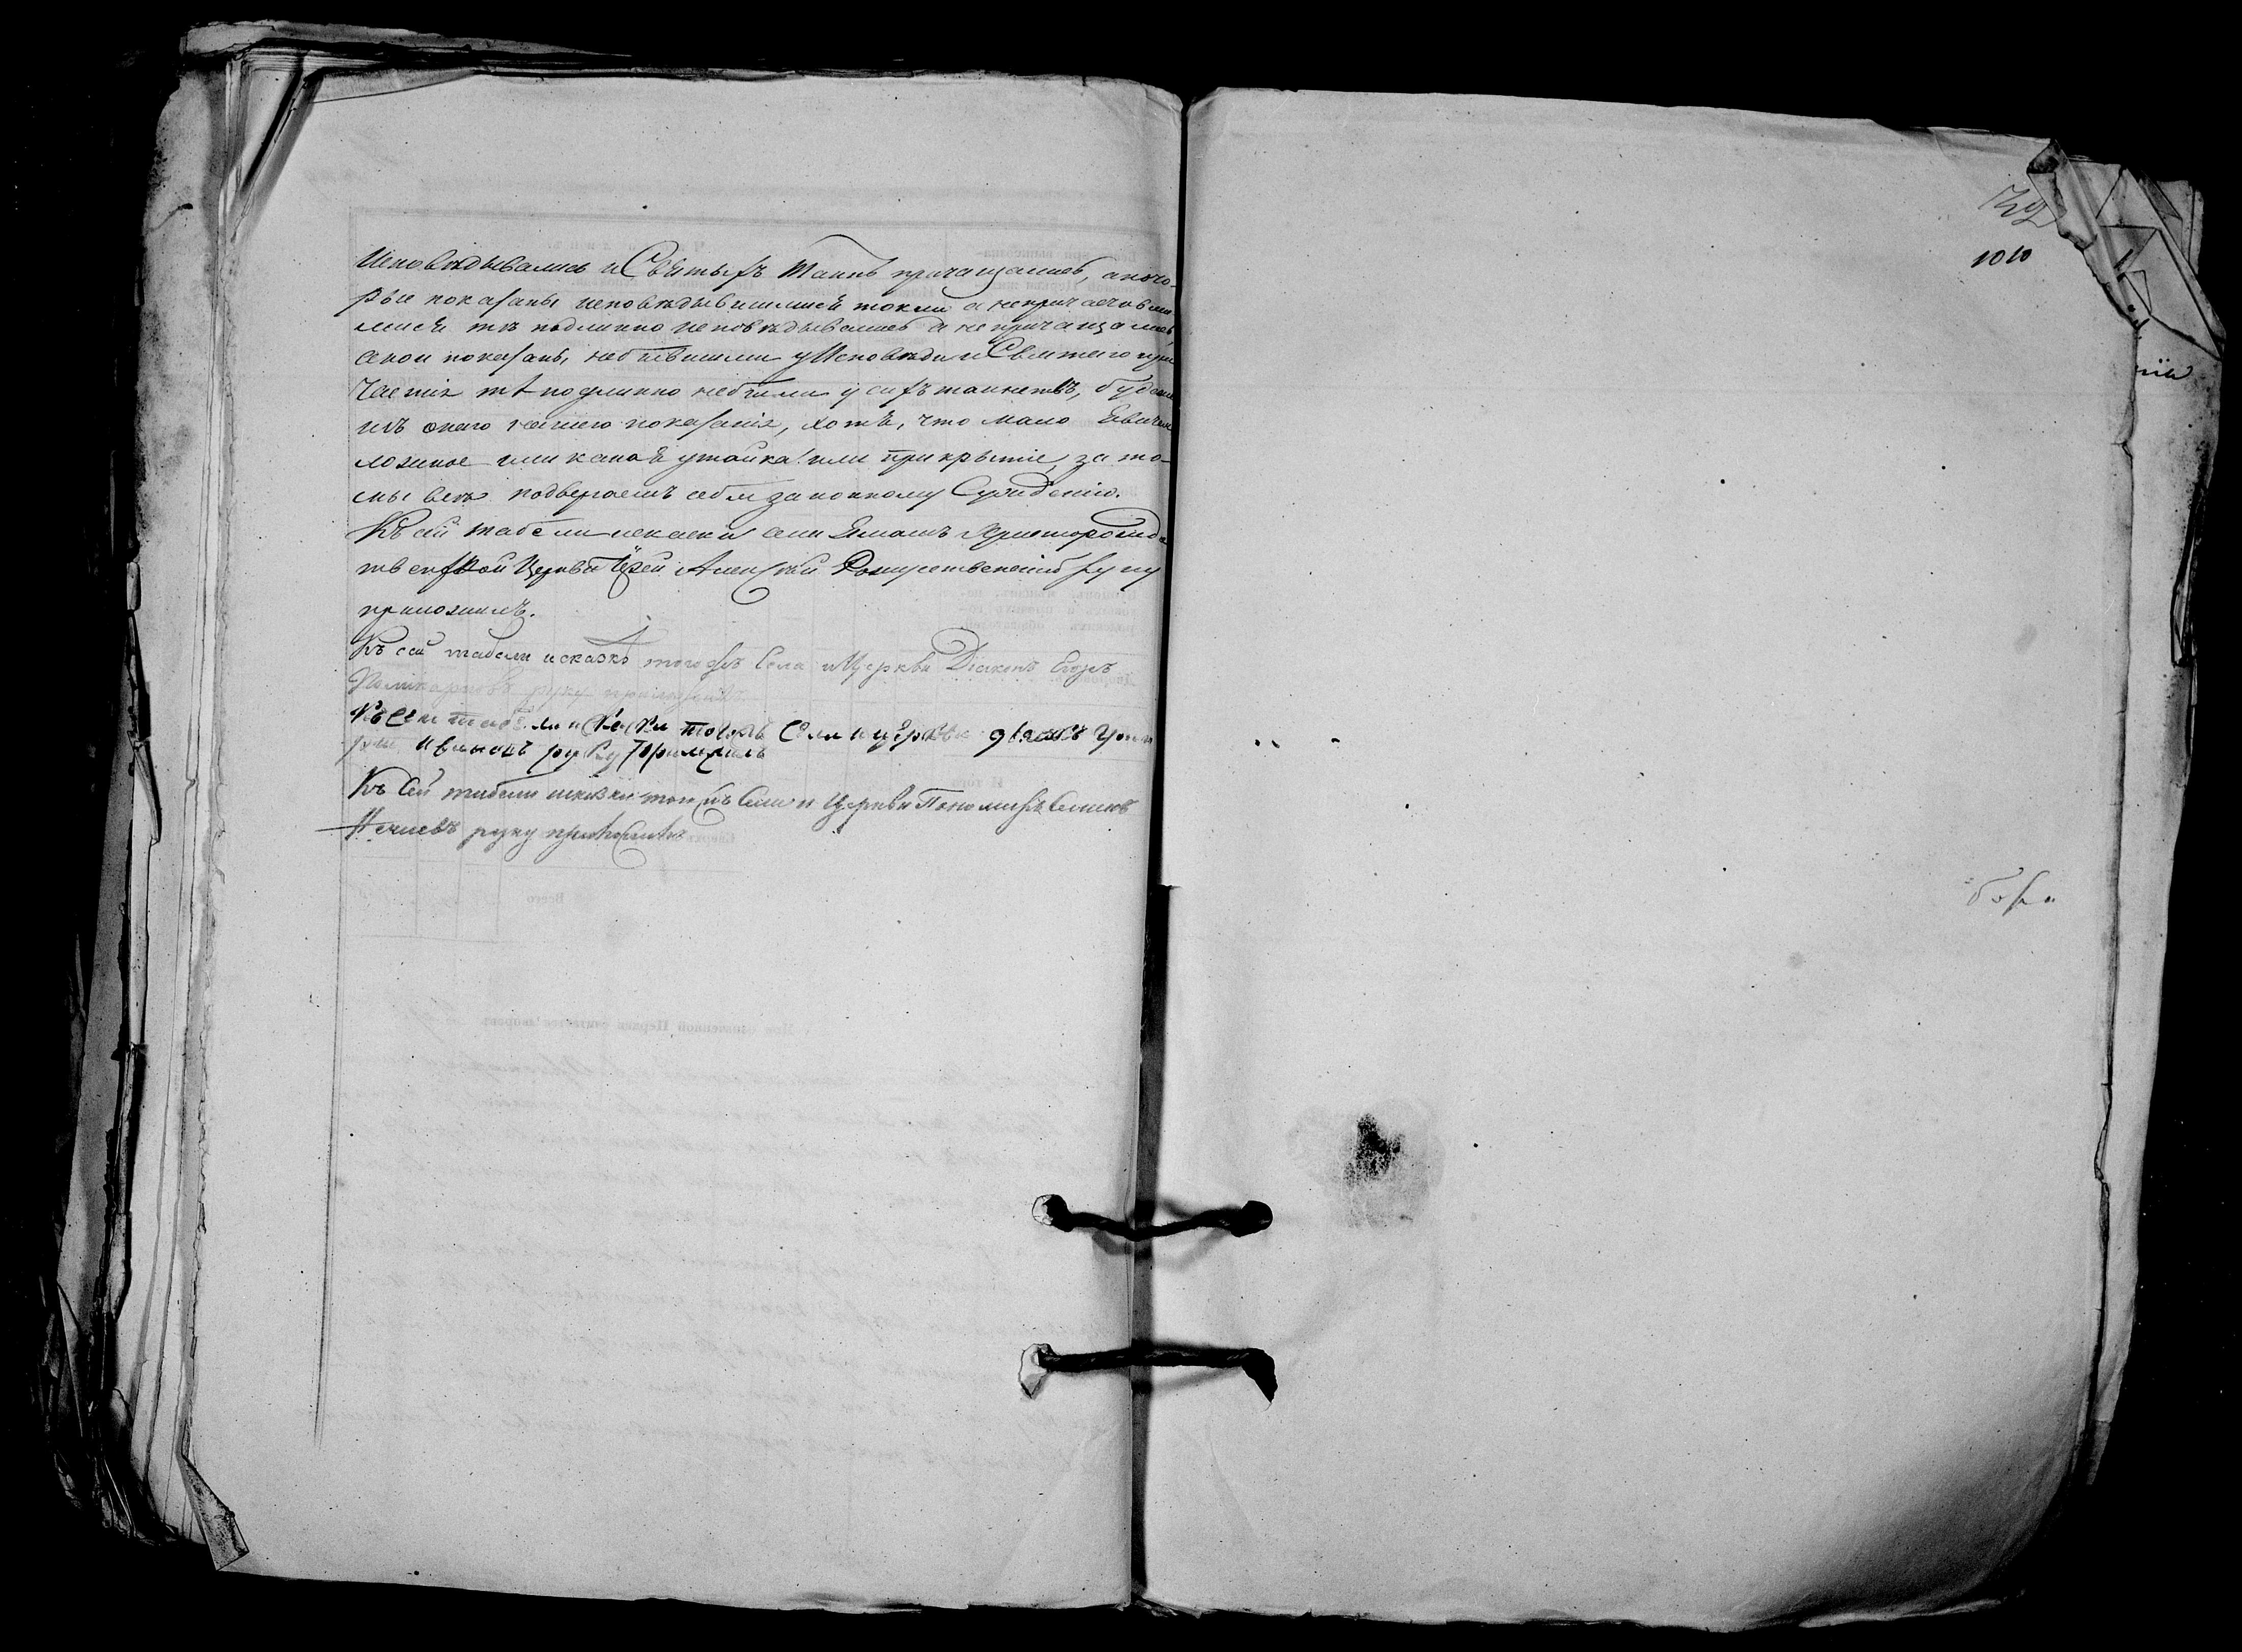 Исповѣдывались и Святыхъ Таинъ причащались, а кото-
рые показаны исповѣдывшимися токмо а непричастивши
мися тѣ подлинно исповѣдывались а не причащались,
а кои показаны небывшими у Исповѣди и Святаго при
частія тѣ подлинно небыли у сихъ таинствъ, будеже
изъ онаго нашего показанія, хотя, что мало явится
ложное или какая утайка или прикрытіе, за то
мы всѣ подвергаемъ себя законному Сужденію.
Къ сей табели и сказки села Христорождес
твенской Церкви Іерей Алексѣй Рождественскій руку
приложилъ.
Къ сей табели и сказкѣ тогожъ Села и Церкви Діаконъ Егоръ
Поликарповъ руку приложилъ
Къ сей табели и скаски тогожъ Села и церкви дьячекъ
Ивановъ руку приложилъ
Къ Сей табели и сказки тогожъ Села и Церкви Пономарь Семенъ
руку приложилъ
1010